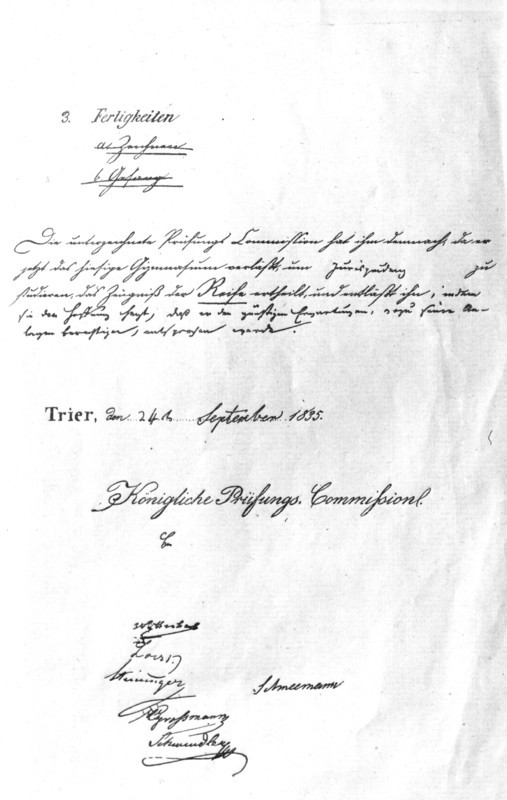 3. Fertigkeiten
a. Zeichnen
b. Gesang
Die unterzeichnete Prüfungs Commission hat ihm demnach, da er
jetzt das hiesige Gymnasium verläßt, um Jurisprudenz zu
studieren, das Zeugniß der Reife ertheilt, und entläßt ihn, indem
sie die Hoffnung hegt, daß er den günstigen Erwartungen, wozu seine An-
lagen berechtigen, entsprechen werde.
Trier, den 24t September 1835.
Königliche Prüfungs. Commission.
Wyttenbach
Loers.
Steininger
Schneemann
Schwendler